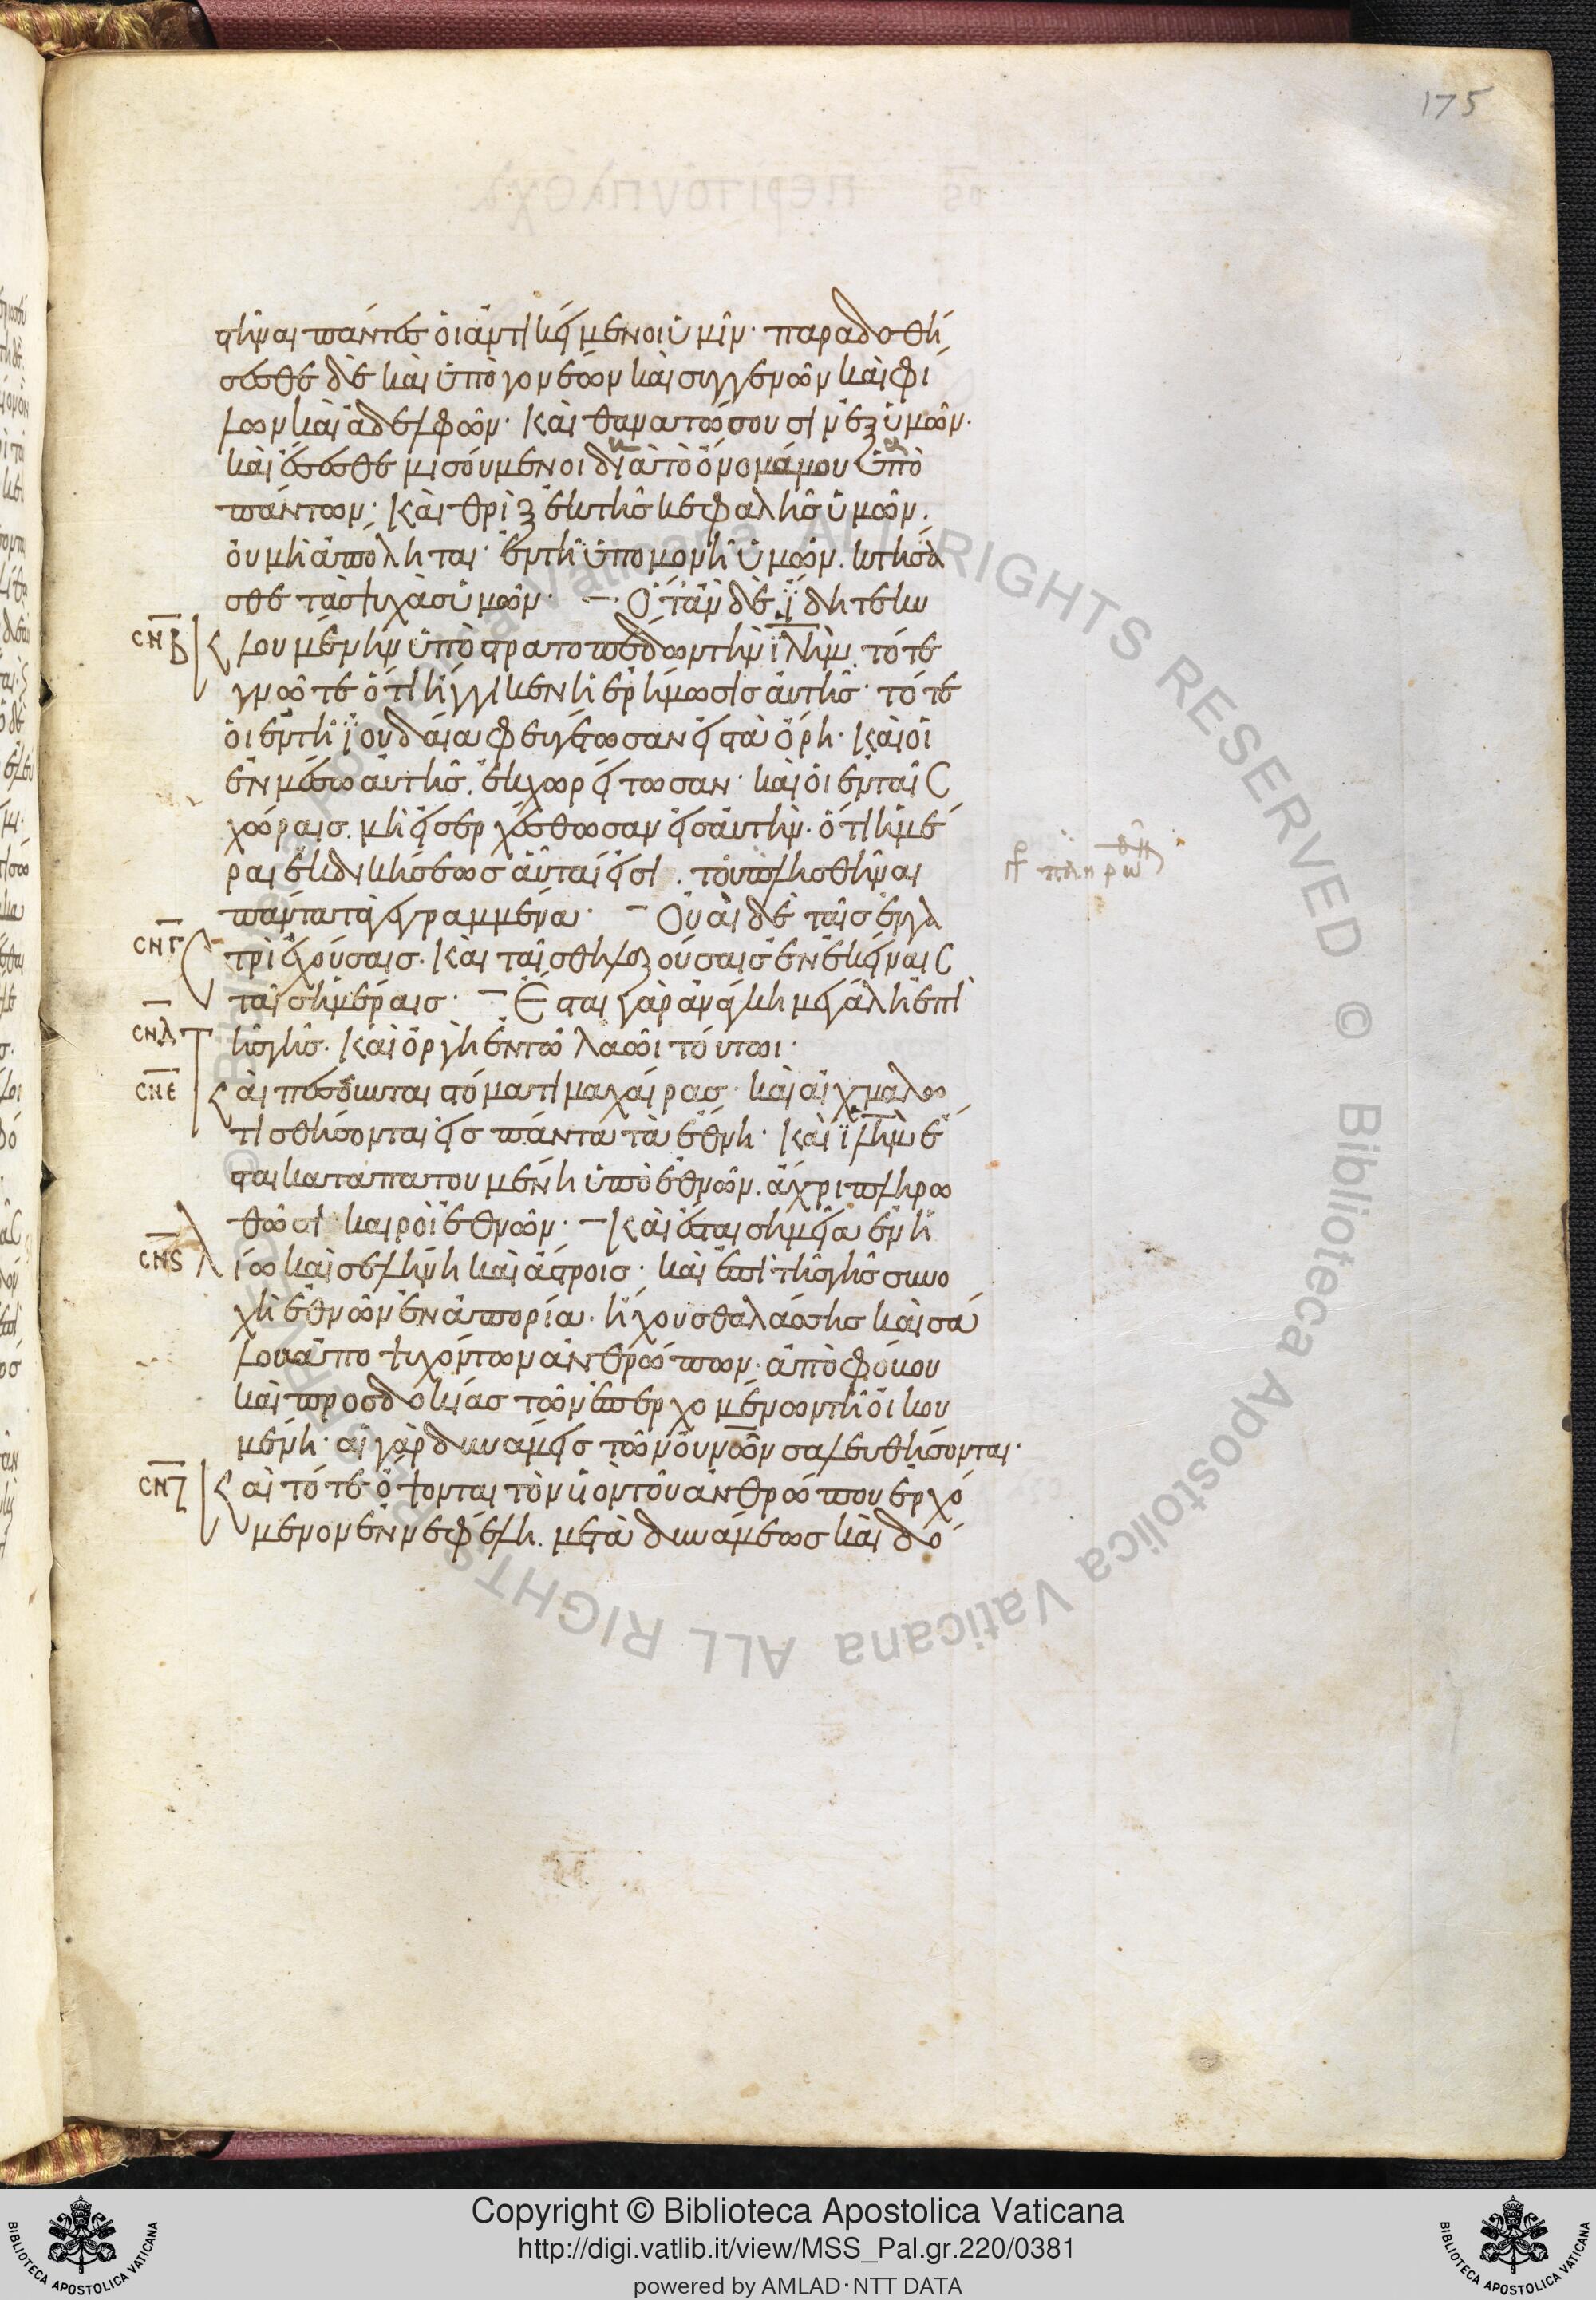 175
στῆναι πάντες ὁι ἀντικείμενοι ὑμῖν· παραδοθή
σεσθε δὲ καὶ ὑπὸ γονέων καὶ συγγενῶν καὶ φί
λων καὶ ἀδελφῶν· καὶ θανατώσουσιν ἐξ ὑμῶν·
καὶ ἔσεσθε μισούμενοι διὰ τὸ ὄνομά μου ὑπὸ
πάντων· καὶ θρὶξ ἐκ τῆς κεφαλῆς ὑμῶν.
ὀυ μὴ ἀπόληται· ἐν τῇ ὑπομονῇ ὑμῶν. κτήσα
σθε τὰς ψυχὰς ὑμῶν· Ὅταν δὲ ἴδητε κυ
σνβ κλουμένην ὑπὸ στρατοπέδων τὴν ϊλημ. τότε
γνῶτε ὅτι ἤγγικεν ἡ ἐρήμωσις ἀυτῆς· τότε
ὁι ἐν τῇ ϊουδαία φευγέτωσαν εἰς τὰ ὄρη· καὶ ὁι
ἐν μέσω ἀυτῆς. ἐκχωρείτωσαν· καὶ ὁι ἐν ταῖς
χώραις. μὴ εἰσερχέσθωσαν εἰς ἀυτήν· ὅτι ἡμέ
ραι ἐκδικήσεως ἀῦταί εἰσι. τοῦ πλησθῆναι
γρ πληρωθῆ
πάντα τὰ γεγραμμένα· Ὀυαὶ δὲ ταῖς ἐν γα
σνγ στρὶ ἐχούσαις. καὶ ταῖς θηλαζούσαις ἐν ἐκείναις
ταῖς ἡμέραις· Ἔσται γὰρ ἀνάγκη μεγάλη ἐπὶ
σνδ τῆς γῆς. καὶ ὀργὴ ἐν τῶ λαῶι τούτωι·
σνε καὶ πεσοῦνται στόματι μαχαίρας· καὶ ἀιχμαλω
τισθήσονται εἰς πάντα τὰ ἔθνη· καὶ ϊλημ ἔ
σται καταπατουμένη ὑπὸ ἐθνῶν. ἄχρι πληρω
θῶσι καιροὶ ἐθνῶν· καὶ ἔσται σημεῖα ἐν ἡ
σνς λίω καὶ σελήνη καὶ ἄστροις· καὶ ἐπὶ τῆς γῆς συνο
χὴ ἐθνῶν ἐν ἀπορία· ἠχούσης θαλάσσης καὶ σά
λου ἀποψυχόντων ἀνθρώπων· ἀπὸ φόβου
καὶ προσδοκίας τῶν ἐπερχομένων τῇ ὀικου
μένη· αἱ γὰρ δυνάμεις τῶν ὀυνῶν σαλευθήσονται·
σνζ καὶ τότε ὄψονται τὸν υἱὸν τοῦ ἀνθρώπου ἐρχό
μενον ἐν νεφέλη. μετὰ δυνάμεως καὶ δό
Copyright © Biblioteca Apostolica Vaticana
http://digi.vatlib.it/view/MSS_Pal.gr.220/0381
powered by AMLAD·NTT DATA
BIBLIOTECA APOSTOLICA VATICANA
BIBLIOTECA APOSTOLICA VATICANA
© Biblioteca Apostolica Vaticana ALL RIGHTS RESERVED © Biblioteca Apostolica Vaticana ALL RIGHTS RESERVED